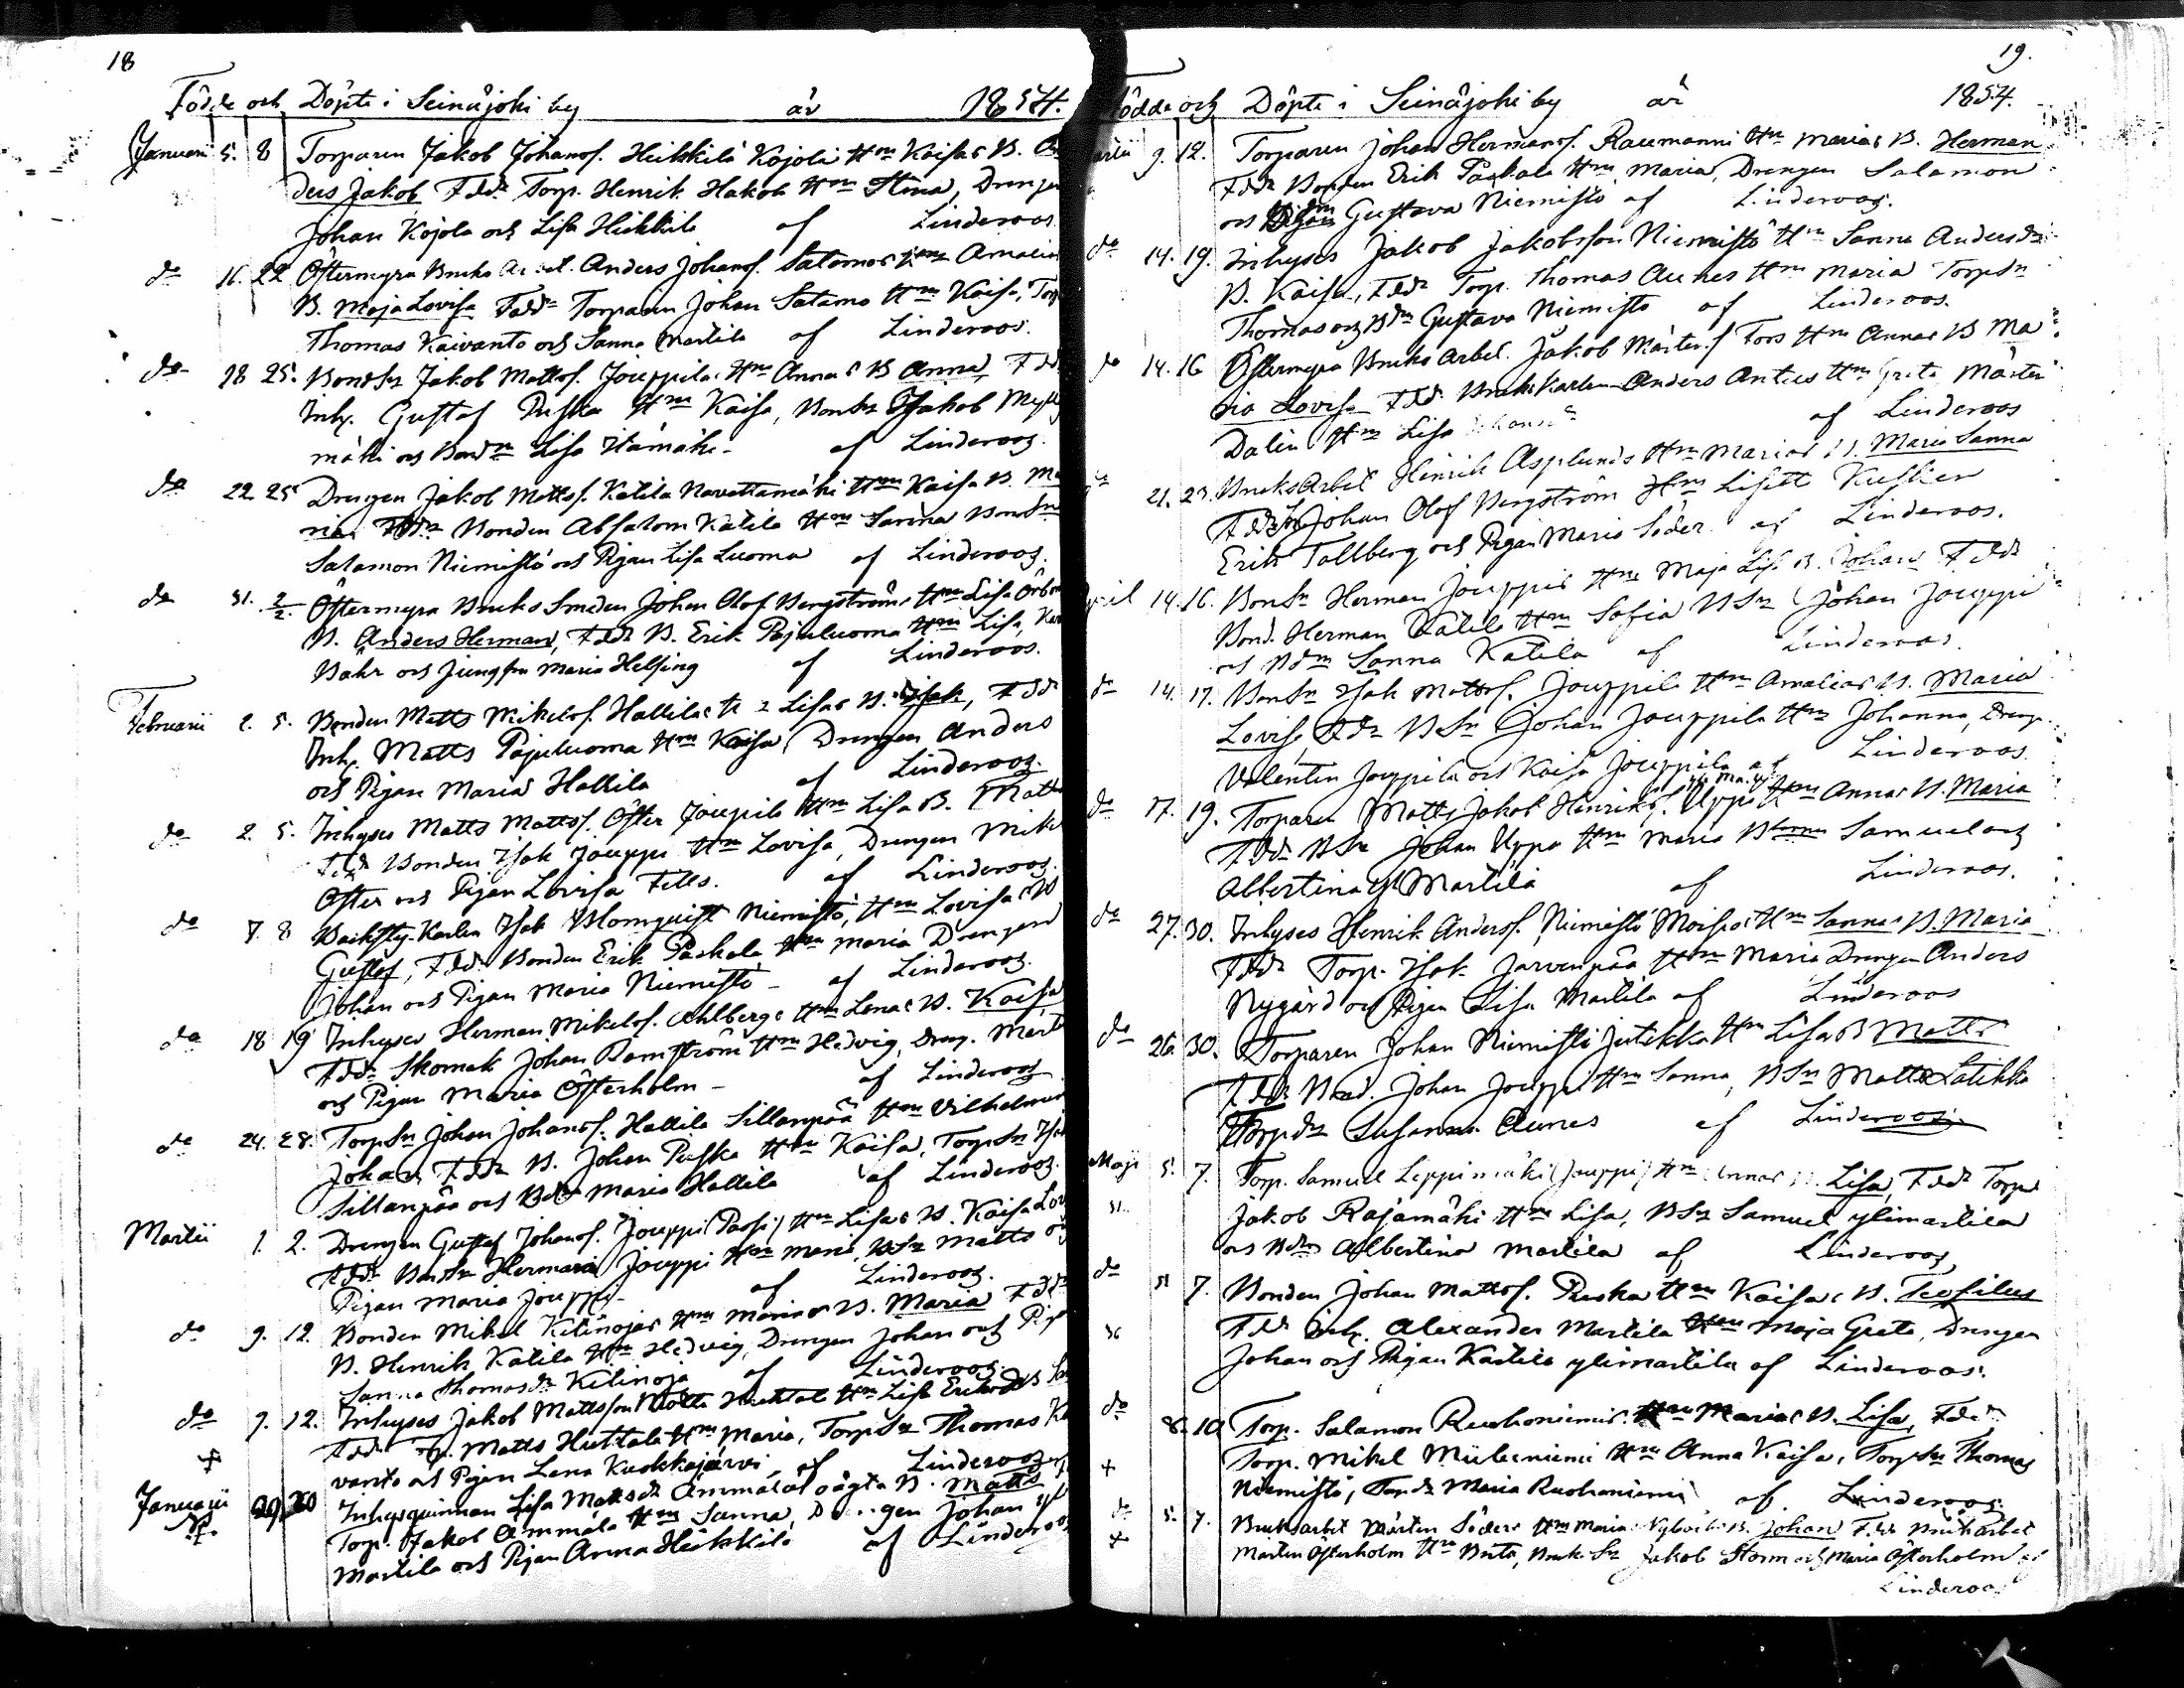 18
Födde och Döpte i Seinäjoki by år 1854.
Januarii 5. 8 Torparen Jakob Johansf. Heikkilä Kojola Hm Kaisas B. An
ders Jakob Fddr Torp. Henrik Hakola Hm Stina, Drengen
Johan Kojola och Lisa Heikkilä af Linderoos
do 16. 22 Östermyra Bruks Arbet. Anders Johansf. Satamos Hm Amalia
B. Maja Lovisa Faddr Torparen Johan Satamo Hm Kaisa, Torp
Thomas Kaivanto och Sanna Martila af Linderoos.
do 18 25. BondSn Jakob Mattsf. Jouppilas Hm Annas B Anna Fdd
Inh. Gustaf Puska Hm Kaisa, BonSn Jakob Mylly
mäki och Bondn Lisa Itämäki - af Linderoos.
do 22 25 Drengen Jakob Mattsf. Katila Navettamäki Hm Kaisa B. Ma
ria Fddr Bonden Absalom Katila Hm Sanna BonSn
Salamon Niemistö och Pigan Lisa Luoma af Linderoos.
do 31. 2/2. Östermyra Bruks Smeden Johan Olof Bergströms Hm Lisa
B. Anders Herman, Fddr B. Erik Pajuluoma Hm Lisa, Karl
Bahr och Jungfru Maria Helsing af Linderoos.
Februarii 2. 5. Bonden Matts Mikelsf. Hallilas H Lisas B. Isak, Fddr
Inh. Matts Pajuluoma Hm Kaisa, Drengen Anders
och Pigan Maria Hallila af Linderoos.
do 2. 5. Inhyses Matts Mattsf. Öster Jouppila Hm Lisa B. Matts
Fddr Bonden Isak Jouppi Hm Lovisa, Drengen Mikel
Öster och Pigan Lovisa Fells. af Linderoos.
do 7. 8 Karlen Isak Blomquist Niemistö, Hm Lovisas B
Gustaf, Fddr Bonden Erik Paskala Hm Maria Drengen
Johan och Pigan Maria Niemistö - af Linderoos.
do 18 19 Inhyses Herman Mikelsf. Ahlbergs Hm Lenas B. Kaisa
Fddr Skomak Johan Ramström Hm Hedvig, Dreng. Mårt
och Pigan Maria Österholm - af Linderoos
do 24. 28. TorpSn Johan Johansf. Hallila Sillanpää Hm Vilhelmin
Johan, Fddr B. Johan Puska Hm Kaisa, TorpSn Isak
Sillanpää och Bdr Maria Hallila af Linderoos.
Martii 1. 2. Drengen Gustaf Johansf. Jouppi (Passi) Hm Lisas B. Kaisa Lov
Fddr BonSn Herman Jouppi Hm Maria, BSn Matts och
Pigan Maria Jouppi - af Linderoos.
do 9. 12. Bonden Mikel Kitinojas Hm Marias B. Maria Fddr
B. Henrik Katila Hm Hedvig, Drengen Johan och Pig
Sanna Thomasdr Kitinoja af Linderoos.
do 9. 12. Inhyses Jakob Mattsson Huhtala Hm Lisa Eriksdr B
Fddr Matts Huhtala Hm Maria, TorpSn Thomas Kai
vanto och Pigan Lena Kuokkajärvi af Linderoos
Januarii 29. 30 Inhysquinnan Lisa Mattsdr Ammälä oägta B. Matts
Torp. Jakob Ammälä Hm Sanna, Drengen Johan yli
Martila och Pigan Anna Heikkilä af Linderoos
19.
Födde och Döpte i Seinäjoki by år 1854.
Martii 9. 12. Torparen Johan Hermansf. Raumanni Hm Marias B. Herman
Fddr Bonden Erik Paskala Hm Maria, Drengen Salamon
och Gustava Niemistö af Linderoos.
do 14. 19. Inhyses Jakob Jakobsson Niemistö Hm Sanna Andersdr
B. Kaisa, Fddr Torp. Thomas Aunes Hm Maria TorpSn
Thomas och Bdn Gustava Niemistö af Linderoos.
do 14. 16 Östermyra Bruks Arbet. Jakob Mårtensf Fors Hm Annas B Ma
ria Lovisa Fddr Bruks Karlen Anders Antus Hm Greta Mårten
Dalin Hm Lisa af Linderoos
21. 23. BruksArbet Henrik Asplunds Hm Marias B. Maria Sanna
Fddr Johan Olof Bergström Hm Lisett
Erik Tallberg och Pigan Maria Söder af Linderoos.
April 14. 16. BonSn Herman Jouppis Hm Maja Lis B. Johan Fddr
Bond. Herman Katila Hm Sofia BSn Johan Jouppi
och Bdn Sanna Katila af Linderoos.
do 14. 17. BonSn Isak Mattsf. Jouppila Hm Amalias B. Maria
Lovisa, Fddr BSn Johan Jouppila Hm Johanna, Dreng.
Valentin Jouppila och Kaisa Jouppila af Linderoos
do 17. 19. Torparen Matts Jakob Henriksf. Uppa Hm Annas B. Maria
Fddr BSn Johan Uppa Hm Maria Samuel och
Albertina yli Martila af Linderoos.
do 27. 30. Inhyses Henrik Andersf. Niemistö Moisio Hm Sannas B. Maria
Fddr Torp. Isak Jarvenpää Hm Maria Drengen Anders
Nygård och Pigan Lisa Martila af Linderoos
do 26. 30. Torparen Johan Niemistö Jutikka Hm Lisas B Matts
Fddr Bond. Johan Jouppi Hm Sanna, BSn Matts Latikka
Torpdr Susanna Aunes af Linderoos
Maji 5. 7. Torp. Samuel Leppimäki (Jouppi) Hm Annas B. Lisa, Fddr Torp
Jakob Rajamäki Hm Lisa, BSn Samuel ylimartila
och Bdn Albertina Martila af Linderoos
do 7. Bonden Johan Mattsf. Puska Hm Kaisas B. Teofilus
Fddr Inh. Alexander Martila Hm Maja Greta, Drengen
Johan och Pigan ylimartila af Linderoos.
do 8. 10 Torp. Salamon Ruohoniemis Hm Marias B. Lisa, Fddr
Torp. Mikel Hm Anna Kaisa, TorpSn Thomas
Niemistö, Torpdr Maria Ruohoniemi af Linderoos.
do 5. 7. Bruksarbet Mårten Söders Hm Maria B. Johan Fddr Bruksarbet
Mårten Österholm Hm Brita, Bruks Sn Jakob Storm och Maria Österholm af
Linderoos